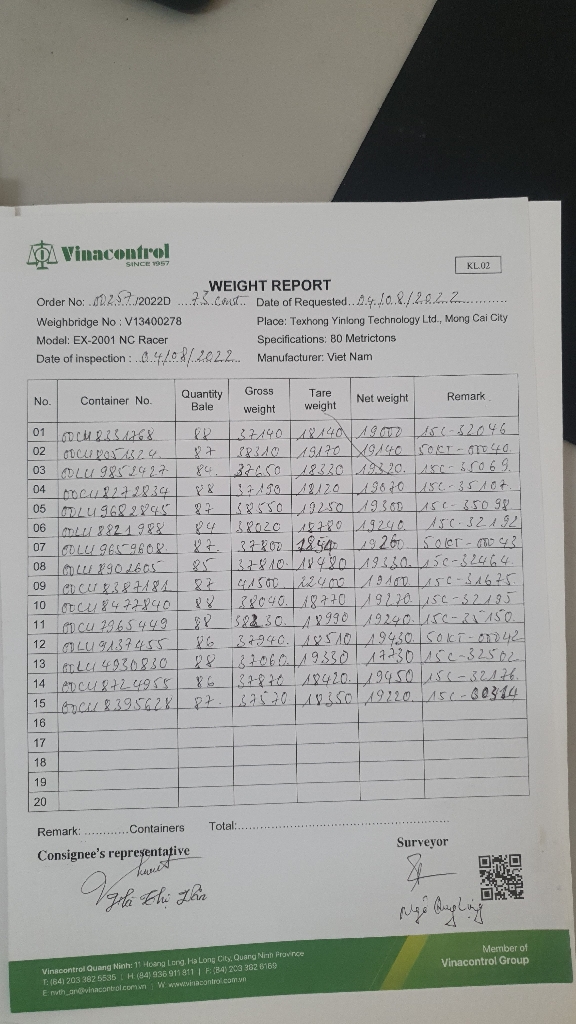 Vinacontrol
SINCE 1957
KL.02
WEIGHT REPORT
Order No: 00257/2022D 75 cont Date of Requested 04/08/2022
Weighbridge No : V13400278 Place: Texhong Yinlong Technology Ltd., Mong Cai City
Model: EX-2001 NC Racer Specifications: 80 Metrictons
Date of inspection : 04/08/2022 Manufacturer: Viet Nam
No. Container No. Quantity Bale Gross weight Tare weight Net weight Remark
01 OOCU8331768 88 37140 18140 19000 15C-32046
02 OOCU8051324 87 38310 19170 19140 50KT-00040
03 OOLU9852427 84 37650 18330 19320 15C-35069
04 OOCU8272834 88 37190 18120 19070 15C-35107
05 OOLU9682845 87 38550 19250 19300 15C-35098
06 OOLU8821988 84 38020 18780 19240 15C-32192
07 OOLU9659608 87 37800 1854 19260 50KT-00043
08 OOLU8902605 85 37810 18480 19330 15C-32464
09 OOCU8387181 87 41500 22400 19100 15C-31675
10 OOCU8477840 88 38040 18770 19270 15C-32195
11 OOCU7965449 88 38230 18990 19240 15C-
12 OOLU9137455 86 37940 18510 19430 50KT-00042
13 OOLU4930830 88 37060 19330 17730 15C-32502
14 OOCU8724955 86 37870 18420 19450 15C-32176
15 OOCU8395628 87 37570 18350 19220 15C-
16
17
18
19
20
Remark: ............Containers Total:
Consignee's representative Surveyor
Vinacontrol Quang Ninh: 11 Hoang Long, Ha Long City, Quang Ninh Province
T: (84) 203 382 5535 | H: (84) 936 911 811 | F: (84) 203 382 6169
E: nvth_qn@vinacontrol.com.vn | W: www.vinacontrol.com.vn
Member of
Vinacontrol Group